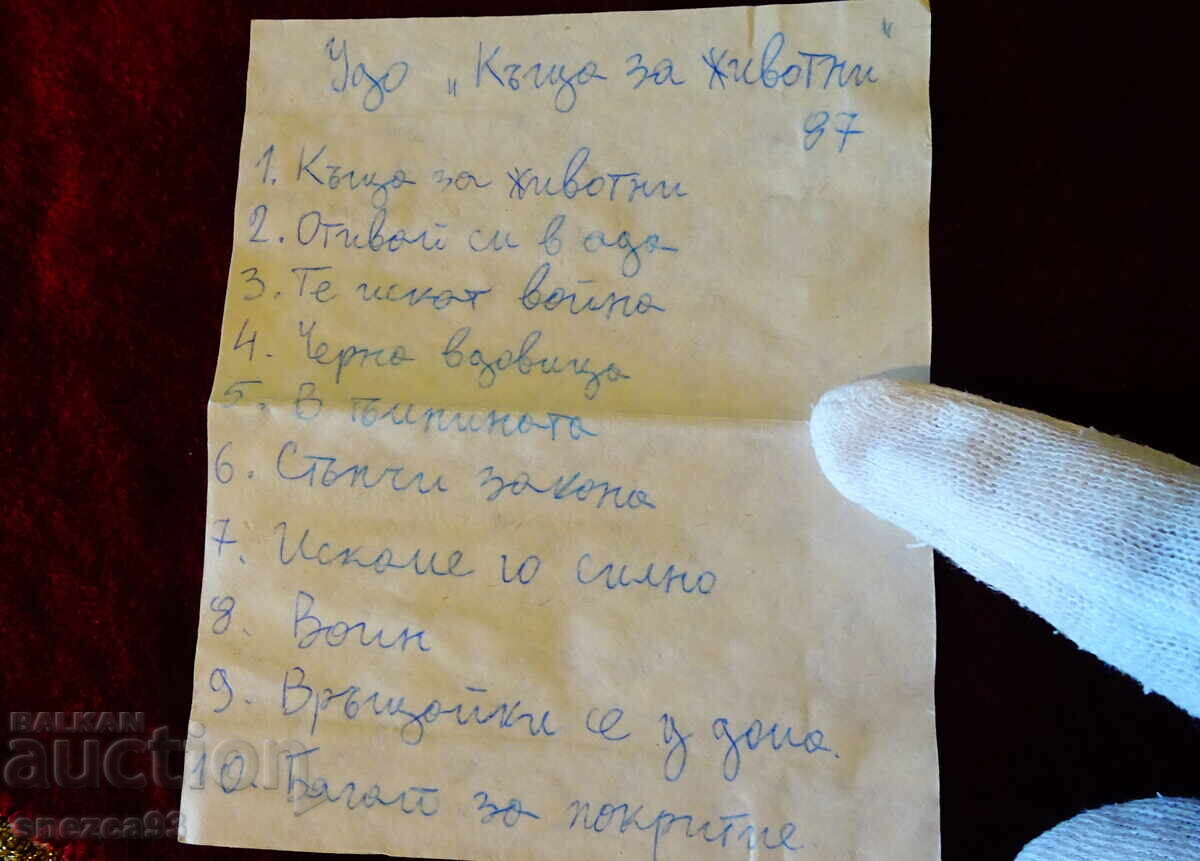 Удо „Къща за животни"
87
1. Къща за животни
2. Отивай си в ада
3. Те искат война
4. Черна вдовица
5. В тъмнината
6. Стъпчи закона
7. Искаме го силно
8. Воин
9. Връщайки се у дома.
10. Бягай за покритие
BALKAN
auction
snezca93